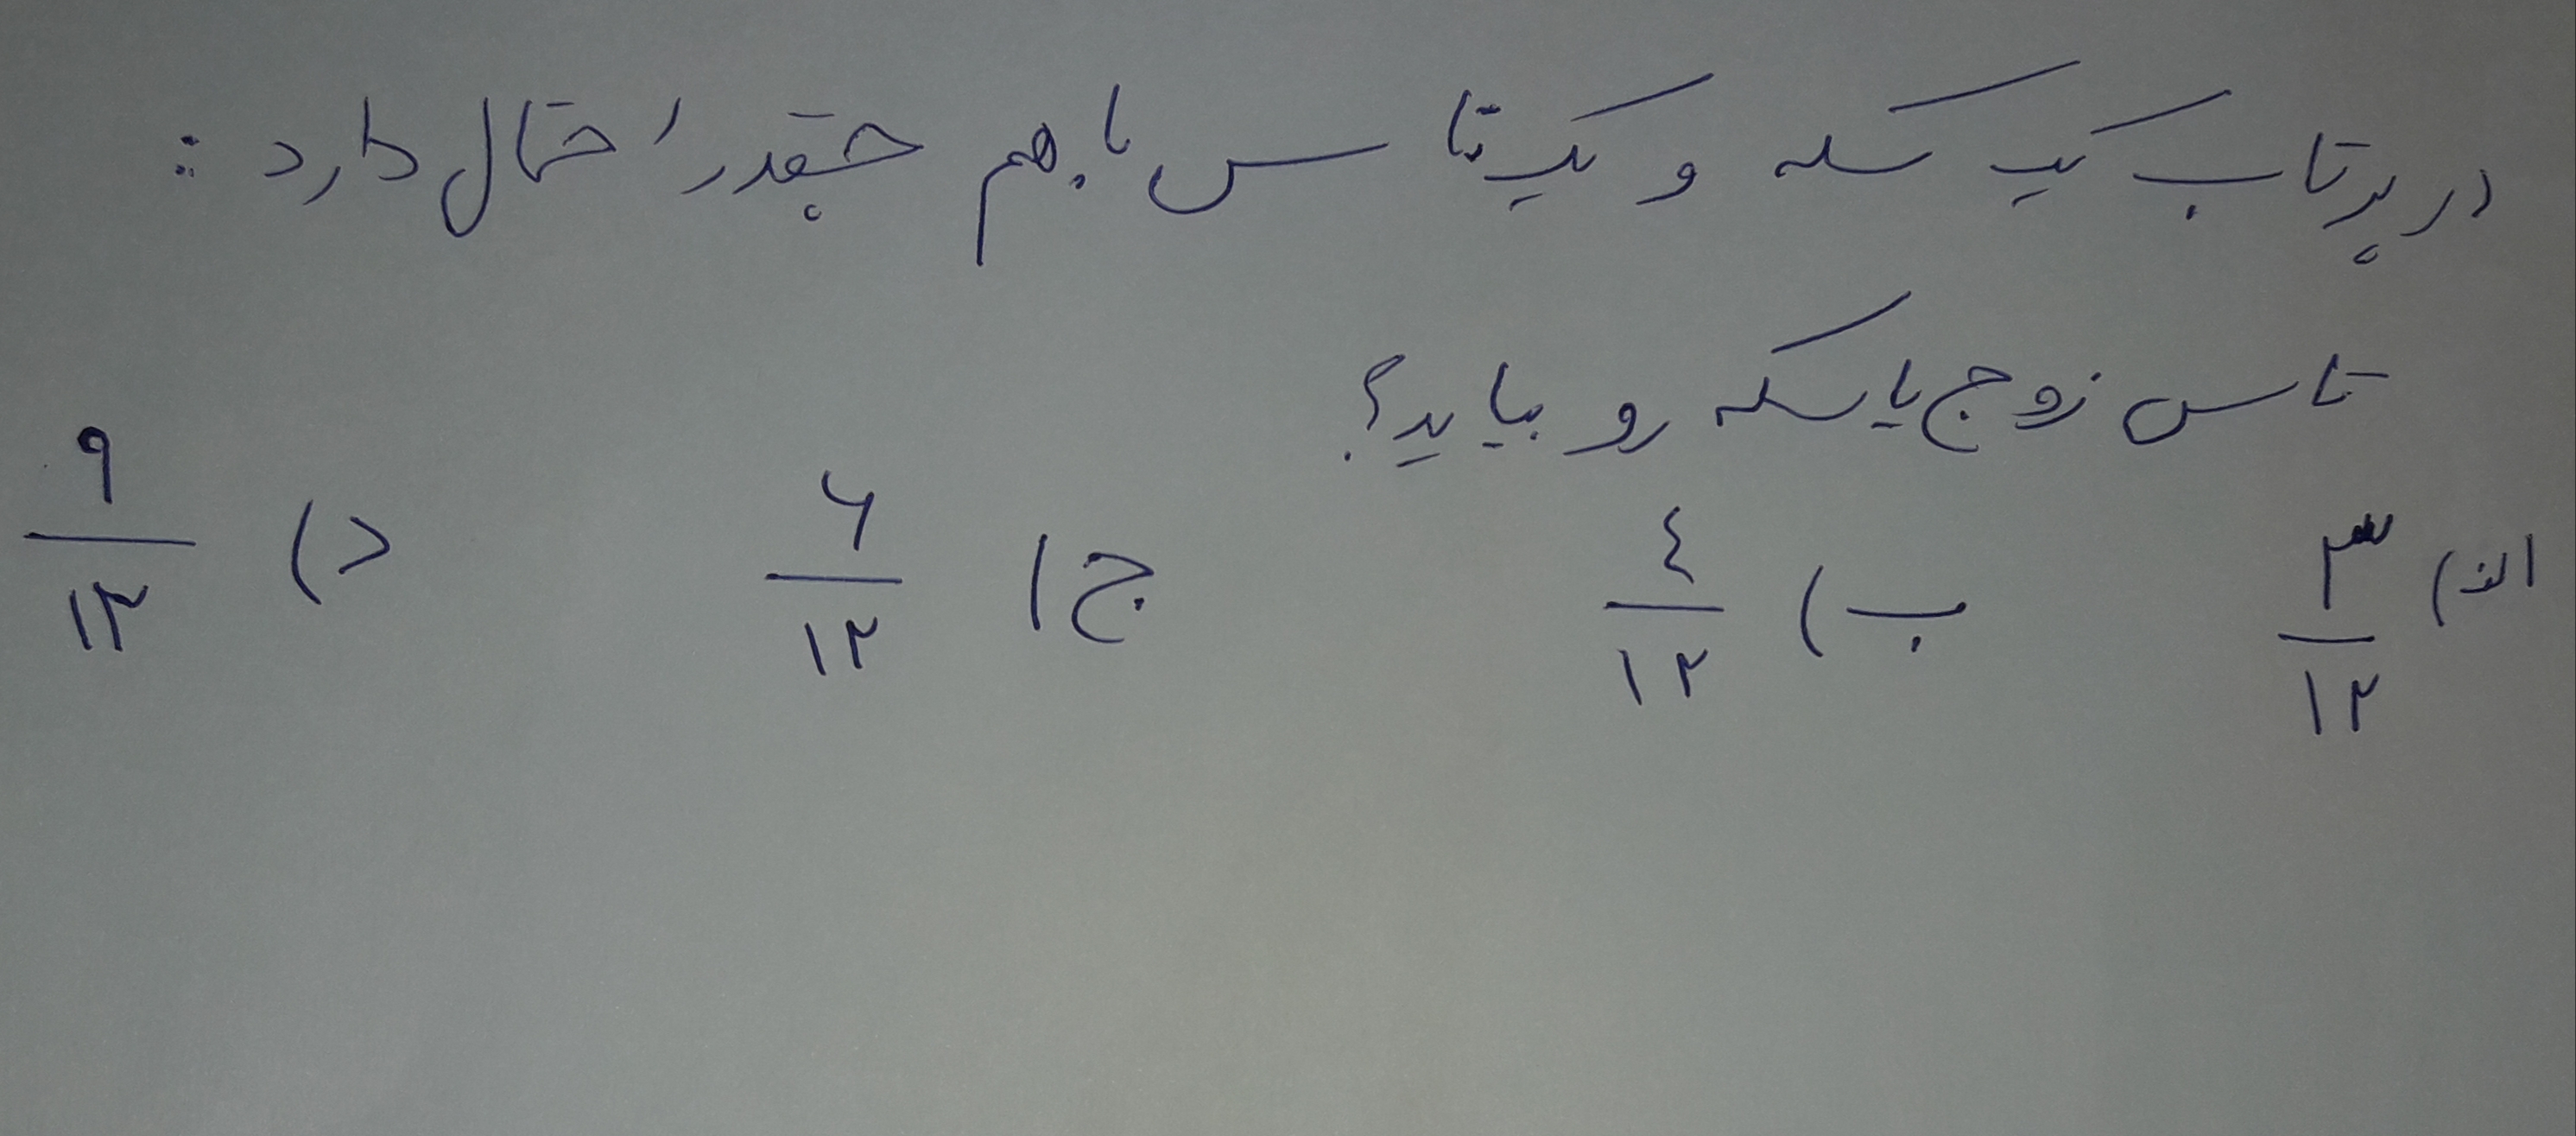 در پرتاب یک سکه و یک تاس با هم چقدر احتمال دارد :
تاس زوج یا سکه رو بیاید؟
الف) ۳/۱۲ ب) ٤/۱۲ ج) ۶/۱۲ د) ۹/۱۲